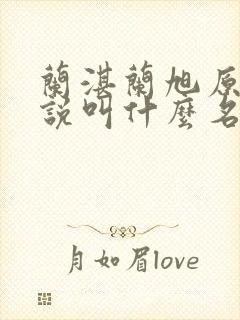 蘭湛蘭旭原
說叫什麼名
月如眉love